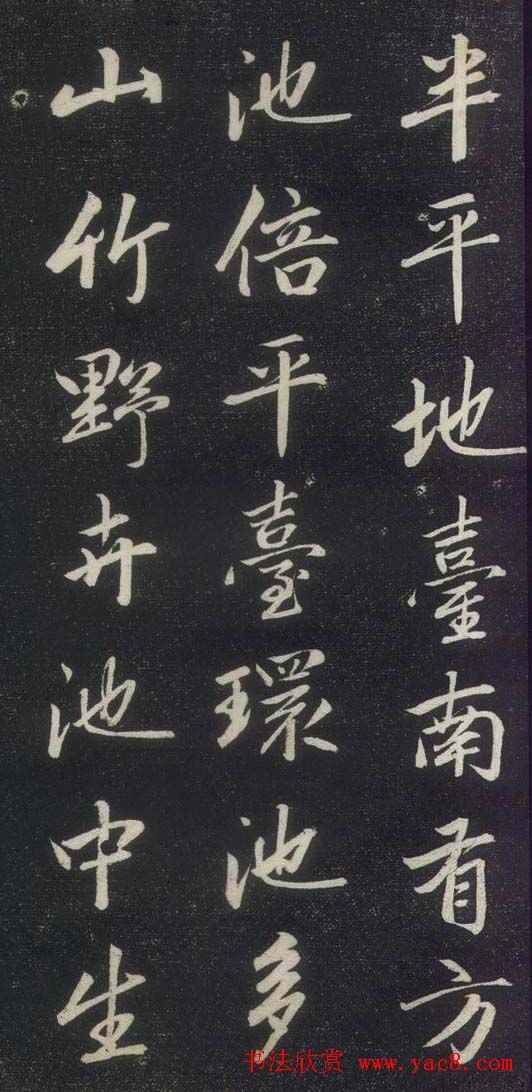 半平地臺南有方
池倍平臺環池多
山竹野卉池中生
书法欣赏 www.yac8.com